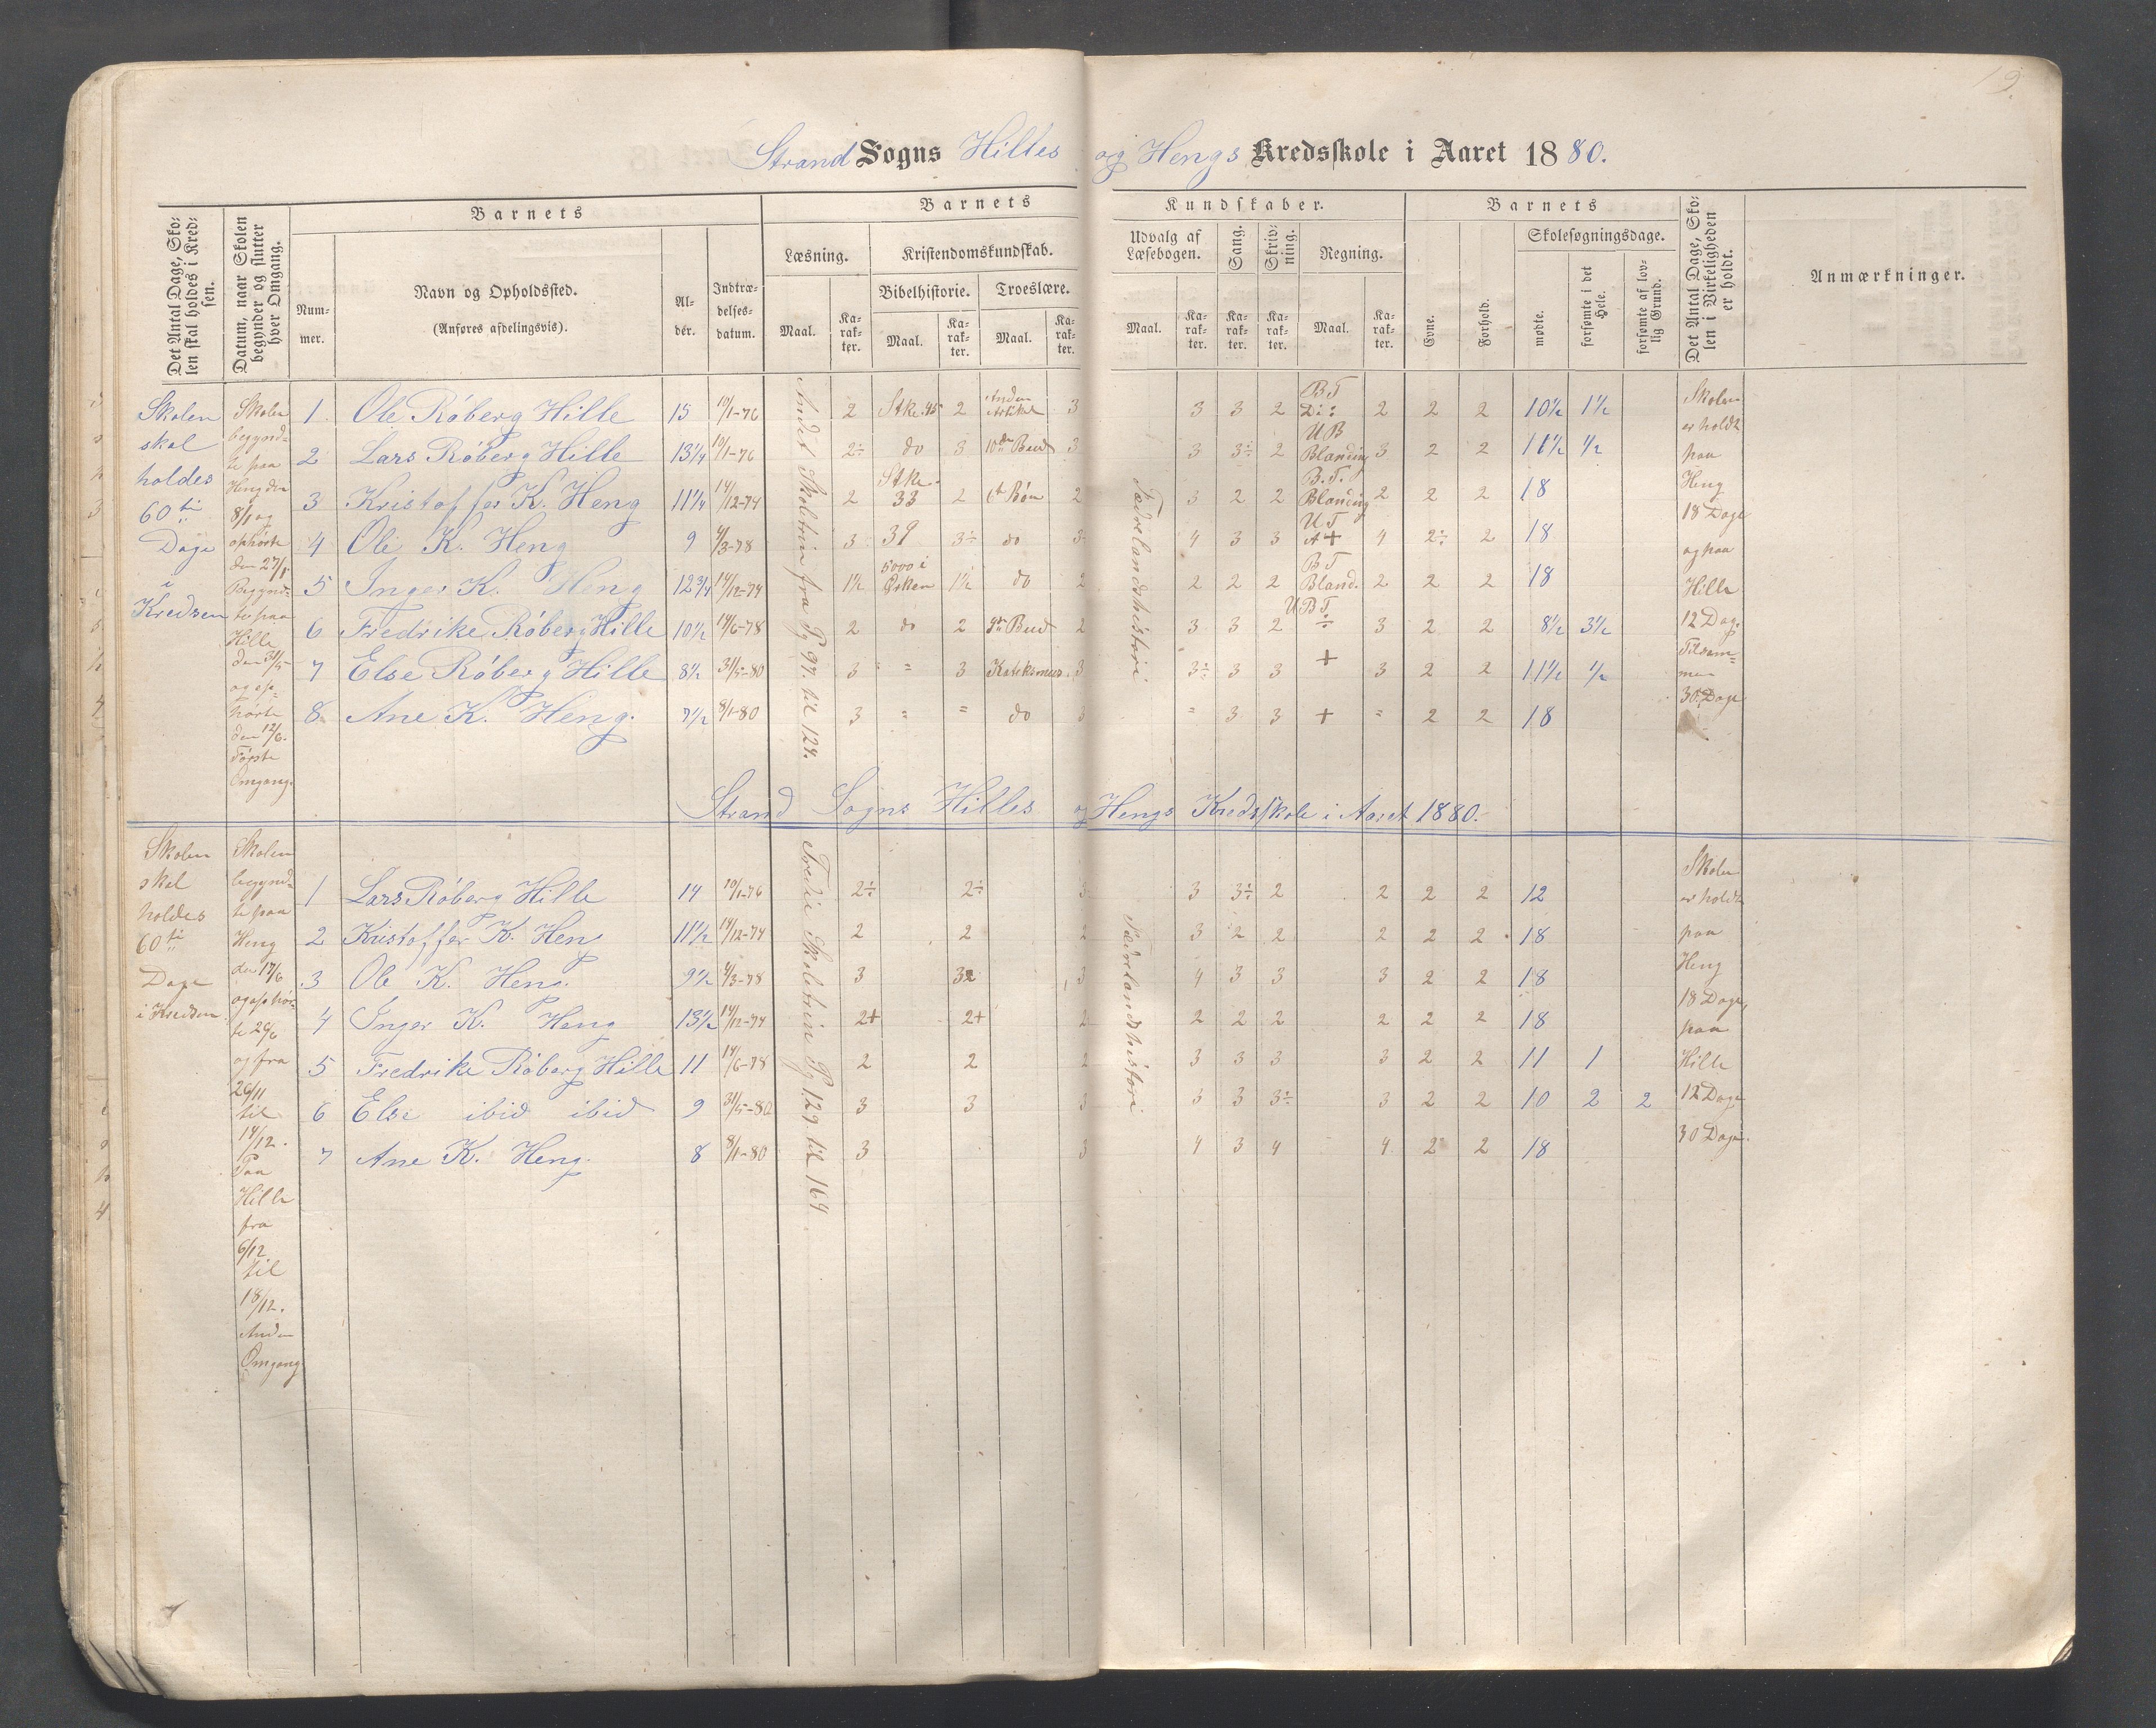 19.
Strand Sogns Hilles og Hengs Kredsskole i Aaret 1880.
Det Antal Dage, Skolen skal holdes i Kredsen.
Datum, naar Skolen begynder og slutter hver Omgang.
Barnets
Nummer.
Navn og Opholdssted.
(Anføres afdelingsvis).
Alder.
Indtrædelsesdatum.
Barnets
Læsning.
Maal.
Karakter.
Kristendomskundskab.
Bibelhistorie.
Maal.
Karakter.
Troeslære.
Maal.
Karakter.
Kundskaber.
Udvalg af Læsebogen.
Maal.
Karakter.
Sang.
Karakter.
Skrivning.
Karakter.
Regning.
Maal.
Karakter.
Barnets
Evne.
Forhold.
Skolesøgningsdage.
mødte.
forsømte i det Hele.
forsømte af lovlig Grund.
Det Antal Dage, Skolen i Virkeligheden er holdt.
Anmærkninger.
Skolen skal holdes 60 ti Dage i Kredsen
Skolen begyndte paa Heng den 8/1 og ophørte den 27/1 Begyndte paa Hille den 31/5 og ophørte den 12/6. Første Omgang.
Andet Skoletrin fra Pg 97. til 124.
Fædrelandshistorie
1 Ole Røberg Hille 15 10/1-76 2 Stke 45 2 Anden Artikel 3 3 3 2 BT Di: 2 2 2 10½ 1½
2 Lars Røberg Hille 13¼ 10/1-76 2÷ do 3 10de Bud 3 3 3÷ 2 UB Blanding 3 2 2 11½ ½
3 Kristoffer K. Heng 11¼ 14/12-74 2 Stke 33 2 6te Bøn 2 3 2 2 B.T. Blanding 2 2 2 18
4 Ole K. Heng 9 4/3-78 3 39 3÷ do 3 4 3 3 UT A+ 4 2÷ 2 18
5 Inger K. Heng 12¾ 14/12-74 1½ 5000 i Ørken 1½ do 2 2 2 2 BT Bland. 2 2 2 18
6 Fredrike Røberg Hille 10½ 14/6-78 2 do 2 3die Bud 2 3 3 2 UBT ÷ 3 2 2 8½ 3½
7 Else Røberg Hille 8½ 31/5-80 3 " = 3 Kateksmus 3 3÷ 3 3 + 3 2 2 11½ ½
8 Ane K. Heng. 7½ 8/1-80 3 = = do 3 = 3 3 + = 2 2 18
Skolen er holdt paa Heng 18 Dage og paa Hille 12 Dag. Tilsammen 30 Dage
Strand Sogns Hilles og Hengs Kredsskole i Aaret 1880.
Skolen skal holdes 60 ti Dage i Kredsen.
Skolen begyndte paa Heng den 17/6 og ophørte 26/6 og fra 26/11 til 14/12. Paa Hille fra 6/12 til 18/12. Anden Omgang
Tredie Skoletrin Pg 129 til 164
Fædrelandshistorie
1 Lars Røberg Hille 14 10/1-76 2÷ 2÷ 3 3 3÷ 2 2 2 2 12
2 Kristoffer K. Heng 11½ 14/12-74 2 2 2 3 2 2 2 2 2 18
3 Ole K. Heng. 9½ 4/3-78 3 32 3 4 3 3 3 2 2 18
4 Inger K. Heng 13½ 14/12-74 2+ 2+ 2 2 2 2 2 2 2 18
5 Fredrike Røberg Hille 11 14/6-78 2 2 2 3 3 3 3 2 2 11 1
6 Else ibid ibid 9 31/5-80 3 3 3 3 3 3÷ 3 2 2 10 2 2
7 Ane K. Heng. 8 8/1-80 3 3 4 3 4 4 2 2 18
Skolen er holdt paa Heng 18 Dage, paa Hille 12 Dage 30 Dage.